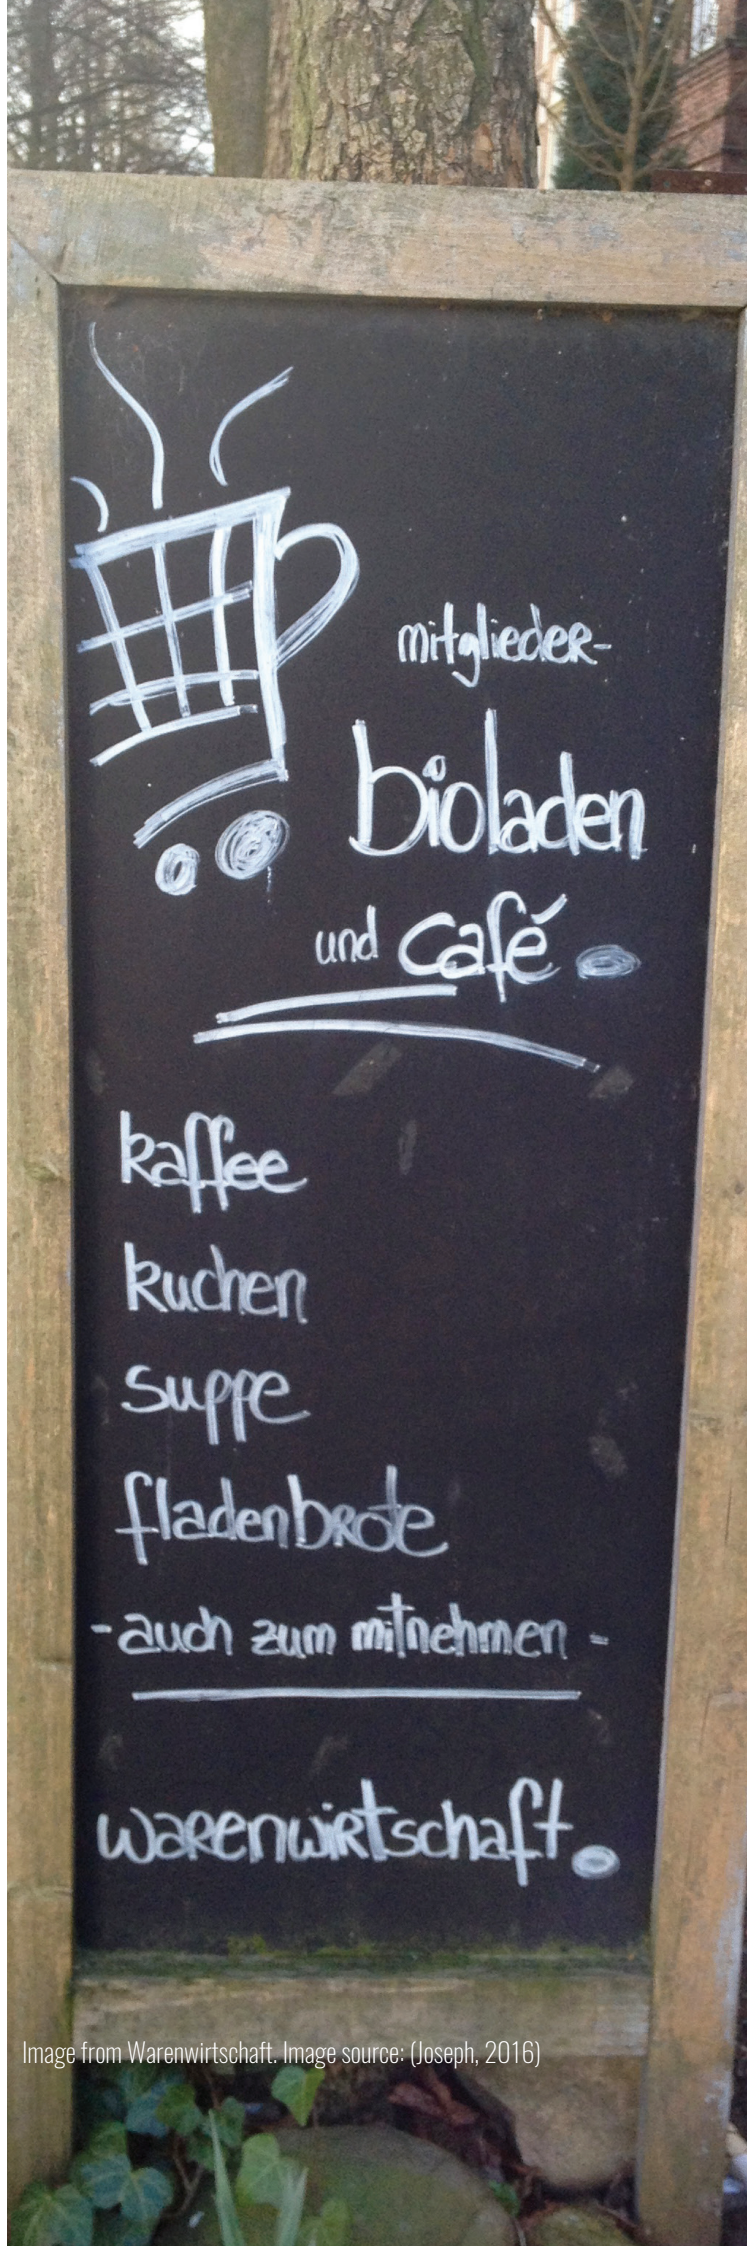 mitglieder-
bioladen
und café.
kaffee
kuchen
suppe
fladenbrote
- auch zum mitnehmen -
warenwirtschaft.
Image from Warenwirtschaft. Image source: (Joseph, 2016)